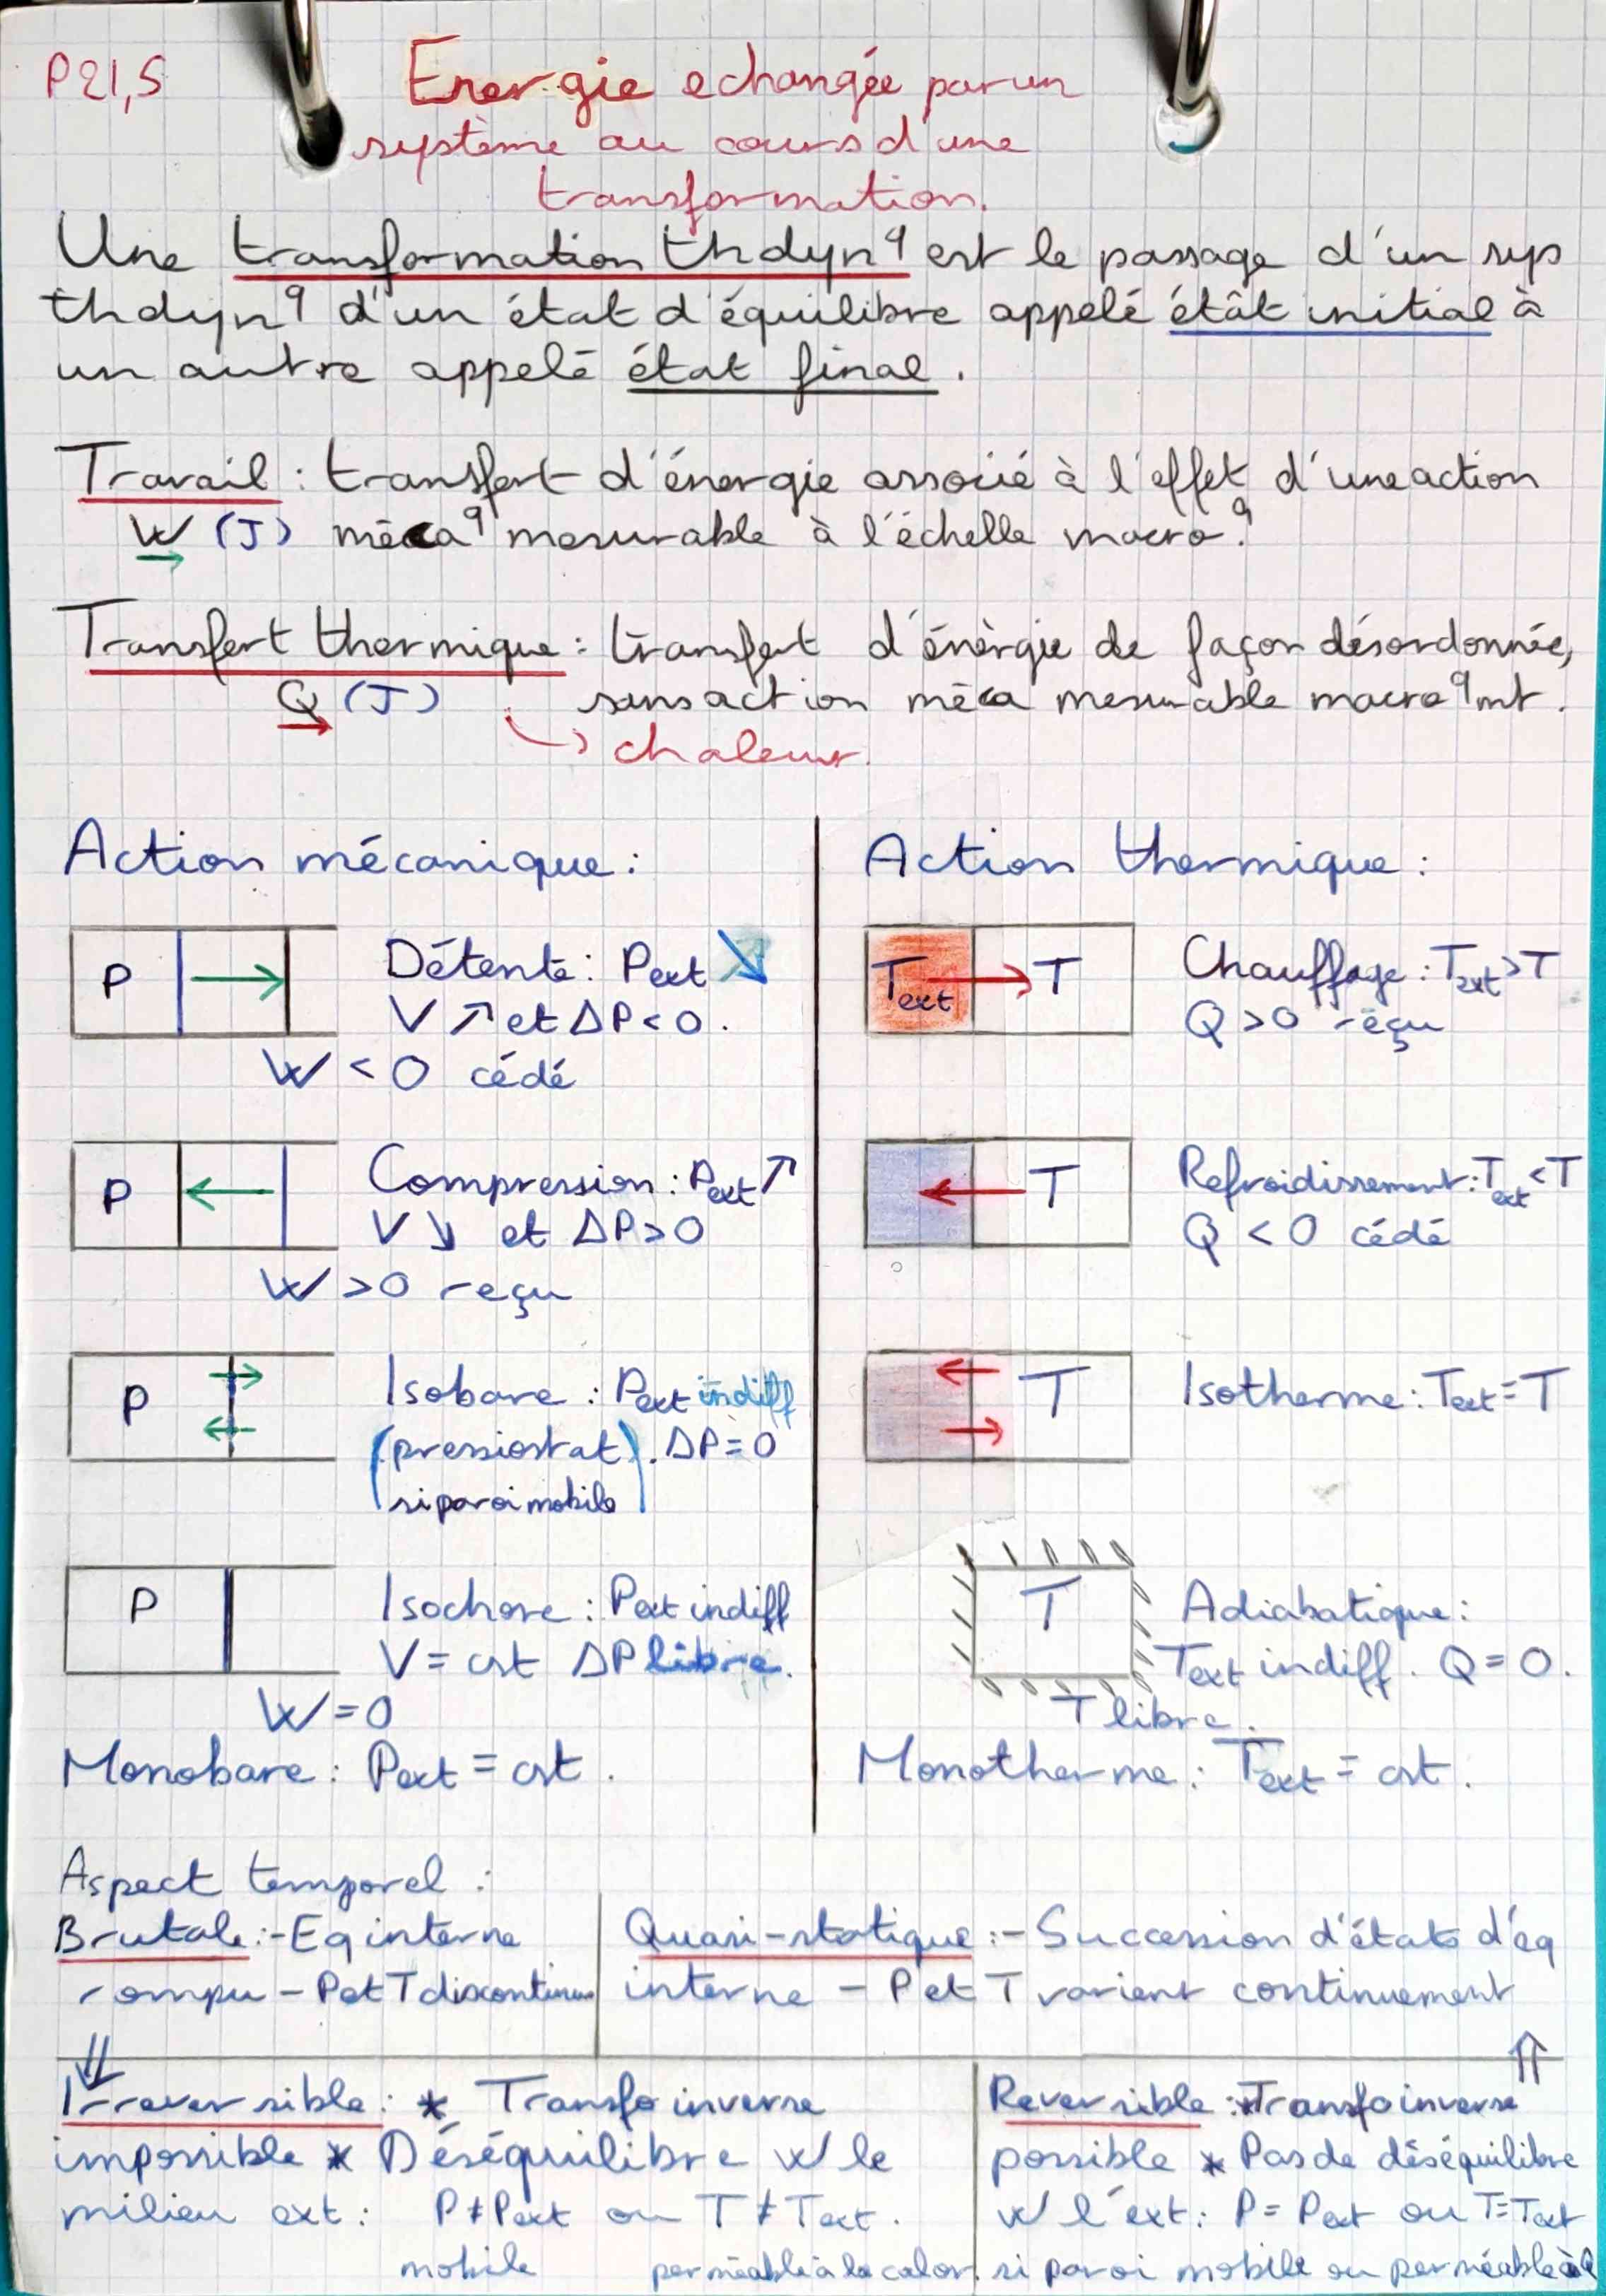 P21,5
Energie echangée par un
système au cours d'une
transformation.
Une transformation thdyn^q est le passage d'un sys
thdyn^q d'un état d'équilibre appelé étât initial à
un autre appelé état final.
Travail : transfert d'énergie associé à l'effet d'une action
W (J) méca^q mesurable à l'échelle macro^q.
Transfert thermique : transfert d'énèrgie de façon désordonnée,
Q (J) sans action méca mesurable macro^qmt.
↳ chaleur.
Action mécanique :
P
Détente : Pext ↘
V ↗ et ΔP < 0.
W < 0 cédé
P
Compression : Pext ↗
V ↘ et ΔP > 0
W > 0 reçu
P
Isobare : Pext indiff
(pressiostat). ΔP = 0
si paroi mobile
P
Isochore : Pext indiff
V = cst ΔP libre.
W = 0
Monobare : Pext = cst.
Action thermique :
Text → T
Chauffage : Text > T
Q > 0 reçu
T
Refroidissement : Text < T
Q < 0 cédé
T
Isotherme : Text = T
T
Adiabatique :
Text indiff. Q = 0.
T libre.
Monotherme : Text = cst.
Aspect temporel :
Brutale : - Eq interne
rompu - P et T discontinus
Quasi-statique : - Succession d'états d'éq
interne - P et T varient continuement
⇓
Irreversible : * Transfo inverse
impossible * Déséquilibre w/ le
milieu ext : P ≠ Pext ou T ≠ Text.
mobile perméable à la calor.
⇑
Reversible : * Transfo inverse
possible * Pas de déséquilibre
w/ l'ext : P = Pext ou T = Text
si paroi mobile ou perméable à Q